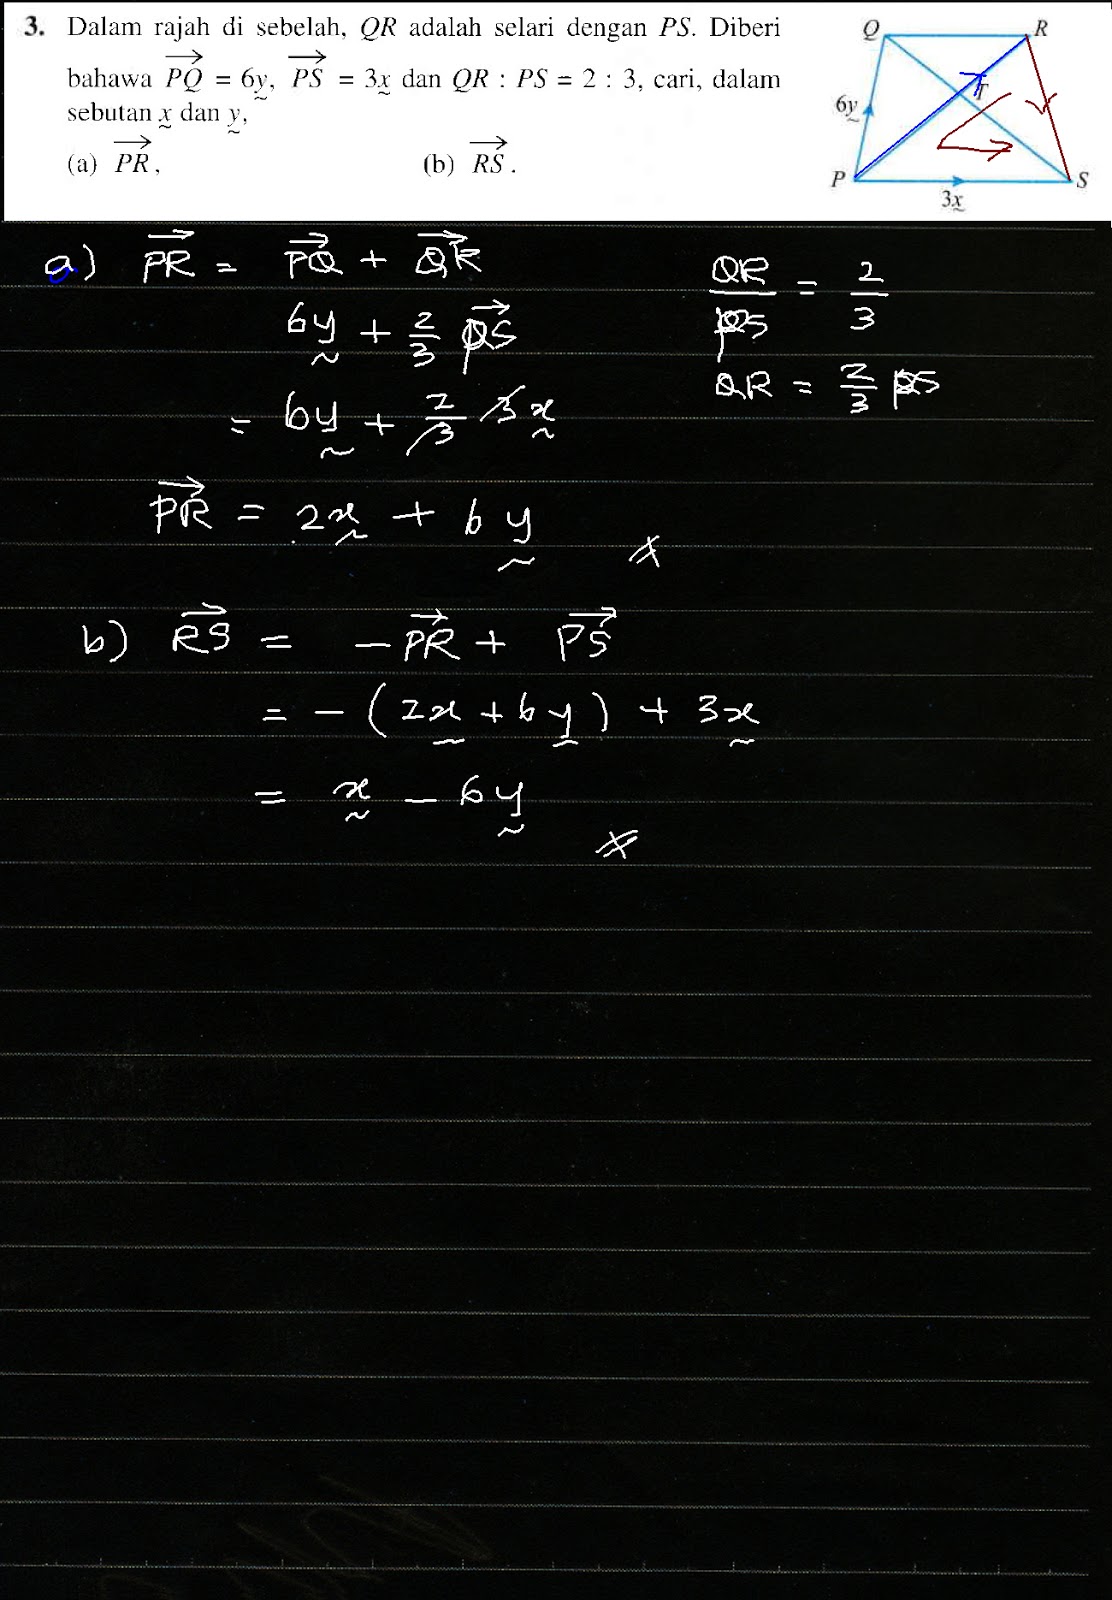 3. Dalam rajah di sebelah, QR adalah selari dengan PS. Diberi
bahawa PQ = 6y, PS = 3x dan QR : PS = 2 : 3, cari, dalam
sebutan x dan y,
(a) PR, (b) RS.
Q R
T
6y
P S
3x
a) PR = PQ + QR
6y + 2/3 PS
= 6y + 2/3 3x
PR = 2x + 6y
QR/PS = 2/3
QR = 2/3 PS
b) RS = -PR + PS
= -(2x + 6y) + 3x
= x - 6y